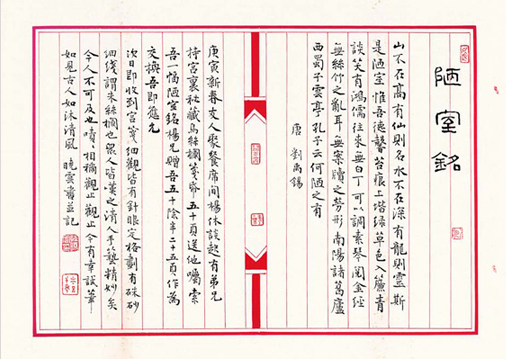 陋室銘
山不在高有仙則名水不在深有龍則靈斯
是陋室惟吾德馨苔痕上堦綠草色入簾青
談笑有鴻儒往來無白丁可以調素琴閱金經
無絲竹之亂耳無案牘之勞形南陽諸葛廬
西蜀子雲亭孔子云何陋之有
唐 劉禹錫
庚寅新春文人聚餐席間楊休談起有弟兄
持宮裏秘藏烏絲欄箋五十頁送他囑索
吾一幅陋室銘楊兄贈吾五十二十五頁作為
交換吾即應允
次日即收到宮箋細觀皆有針眼定格劃有硃砂
細綫謂朱絲欄也眾人皆嘆之清人手藝精妙矣
今人不可及也嘖嘖相稱觀止觀止今有幸試筆
如見古人如沐清風 晚雲齋並記